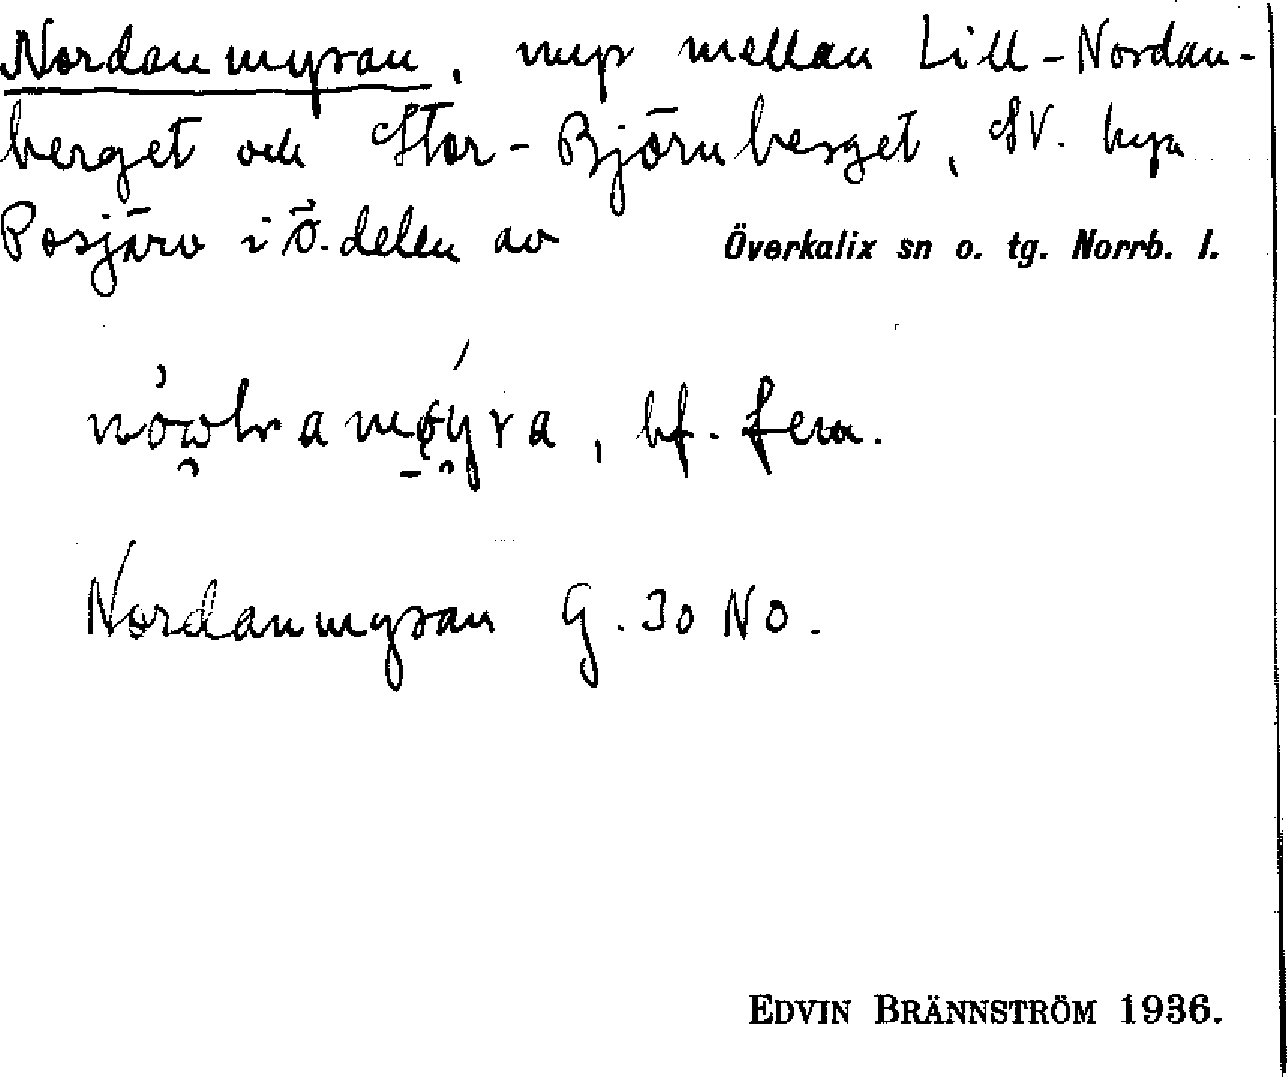 Nordanmyran, myr mellan Lill-Nordan-
berget och Stor-Björnberget, SV.
Posjärv i Ö. delen av Överkalix sn o. tg. Norrb. l.
bf. fem.
Nordanmyran G. 30 NO.
EDVIN BRÄNNSTRÖM 1936.